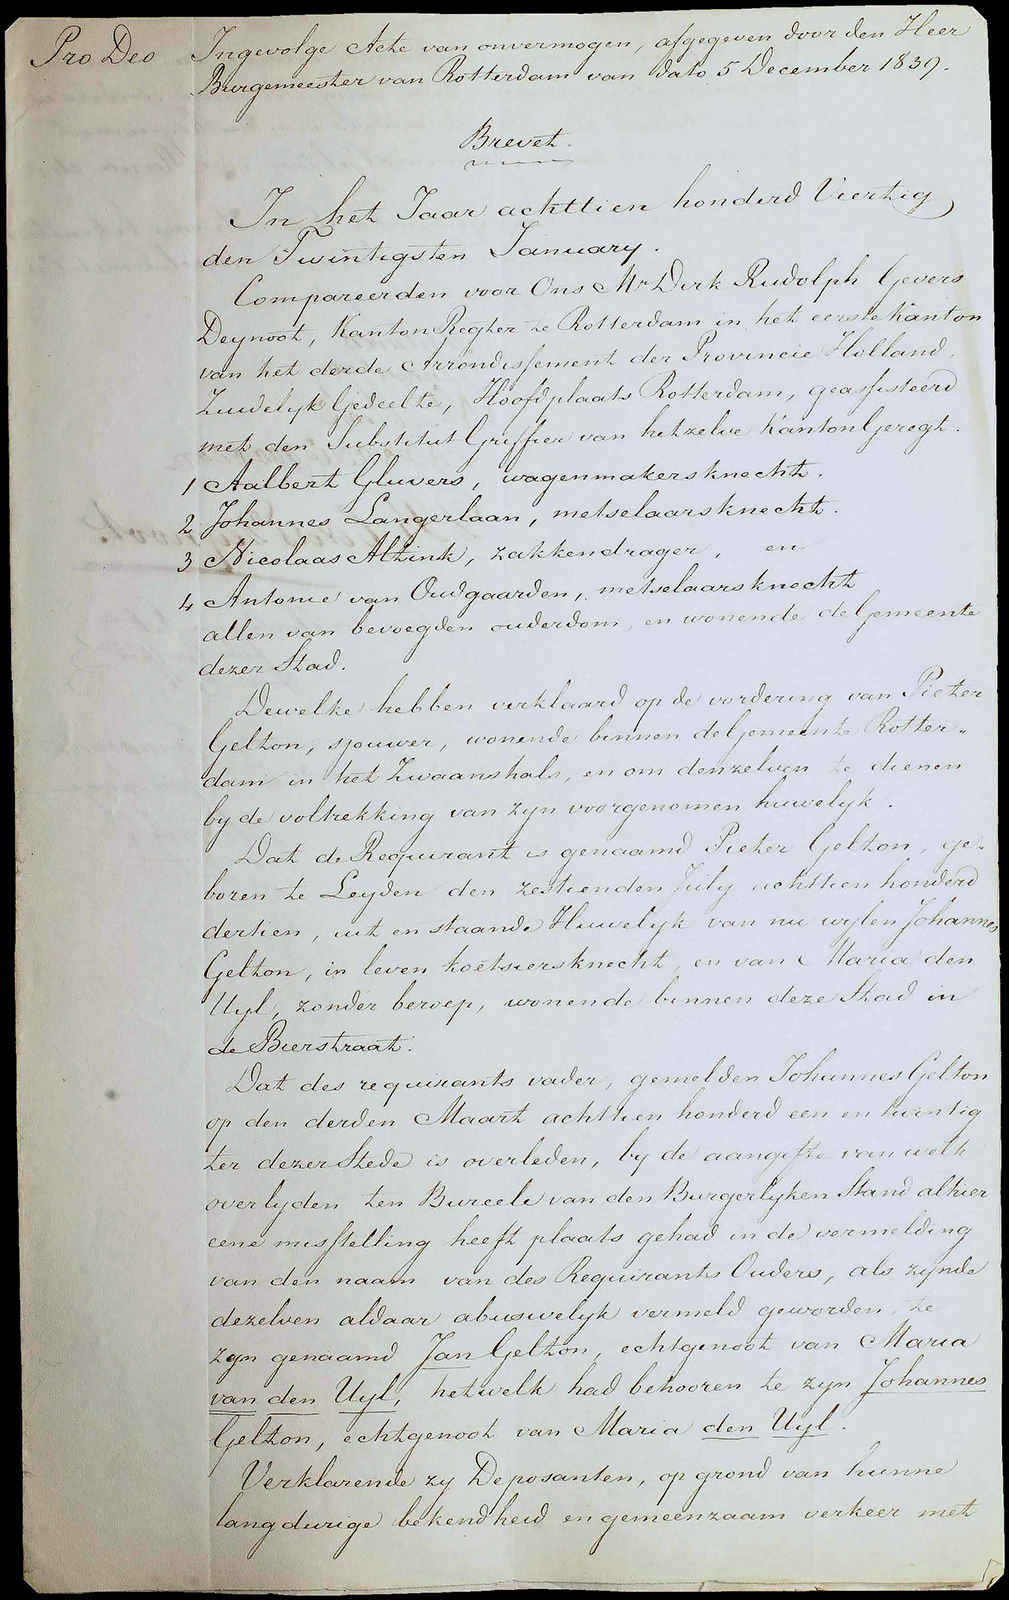 Pro Deo
Ingevolge Acte van onvermogen, afgegeven door den Heer
Burgemeester van Rotterdam van dato 5 December 1839.
Brevet.
In het Jaar achttien honderd Viertig
den Twintigsten January.
Compareerden voor Ons Mr Dirk Rudolph Gevers
Deynoot, Kanton Regter te Rotterdam in het eerste Kanton
van het derde Arrondissement der Provincie Holland,
Zuidelyk Gedeelte, Hoofdplaats Rotterdam, geassisteerd
met den Substitut Griffier van hetzelve Kanton Geregt.
1 Aalbert Gluvers, wagenmakersknecht.
2 Johannes Langerlaan, metselaarsknecht.
3 Nicolaas Altink, zakkendrager, en
4 Antonie van Oudgaarden, metselaarsknecht
allen van bevoegden ouderdom, en wonende de Gemeente
dezer Stad.
Dewelke hebben verklaard op de vordering van Pieter
Gelton, sjouwer, wonende binnen de Gemeente Rotter-
dam in het Zwaanshals, en om denzelven te dienen
by de voltrekking van zyn voorgenomen huwelyk.
Dat de Requirant is genaamd Pieter Gelton, ge-
boren te Leyden den zestienden July achttien honderd
dertien, uit en staande Huwelyk van nu wylen Johannes
Gelton, in leven koetsiersknecht, en van Maria den
Uyl, zonder beroep, wonende binnen deze Stad in
de Bierstraat.
Dat des requirants vader, gemelden Johannes Gelton
op den derden Maart achttien honderd een en twintig
ter dezer Stede is overleden, by de aangifte van welk
overlyden ten Bureele van den Burgerlyken Stand alhier
eene misstelling heeft plaats gehad in de vermelding
van den naam van des Requirants Ouders, als zynde
dezelven aldaar abusivelyk vermeld geworden te
zyn genaamd Jan Gelton, echtgenoot van Maria
van den Uyl, hetwelk had behooren te zyn Johannes
Gelton, echtgenoot van Maria den Uyl.
Verklarende zy Deposanten, op grond van hunne
langdurige bekendheid en gemeenzaam verkeer met